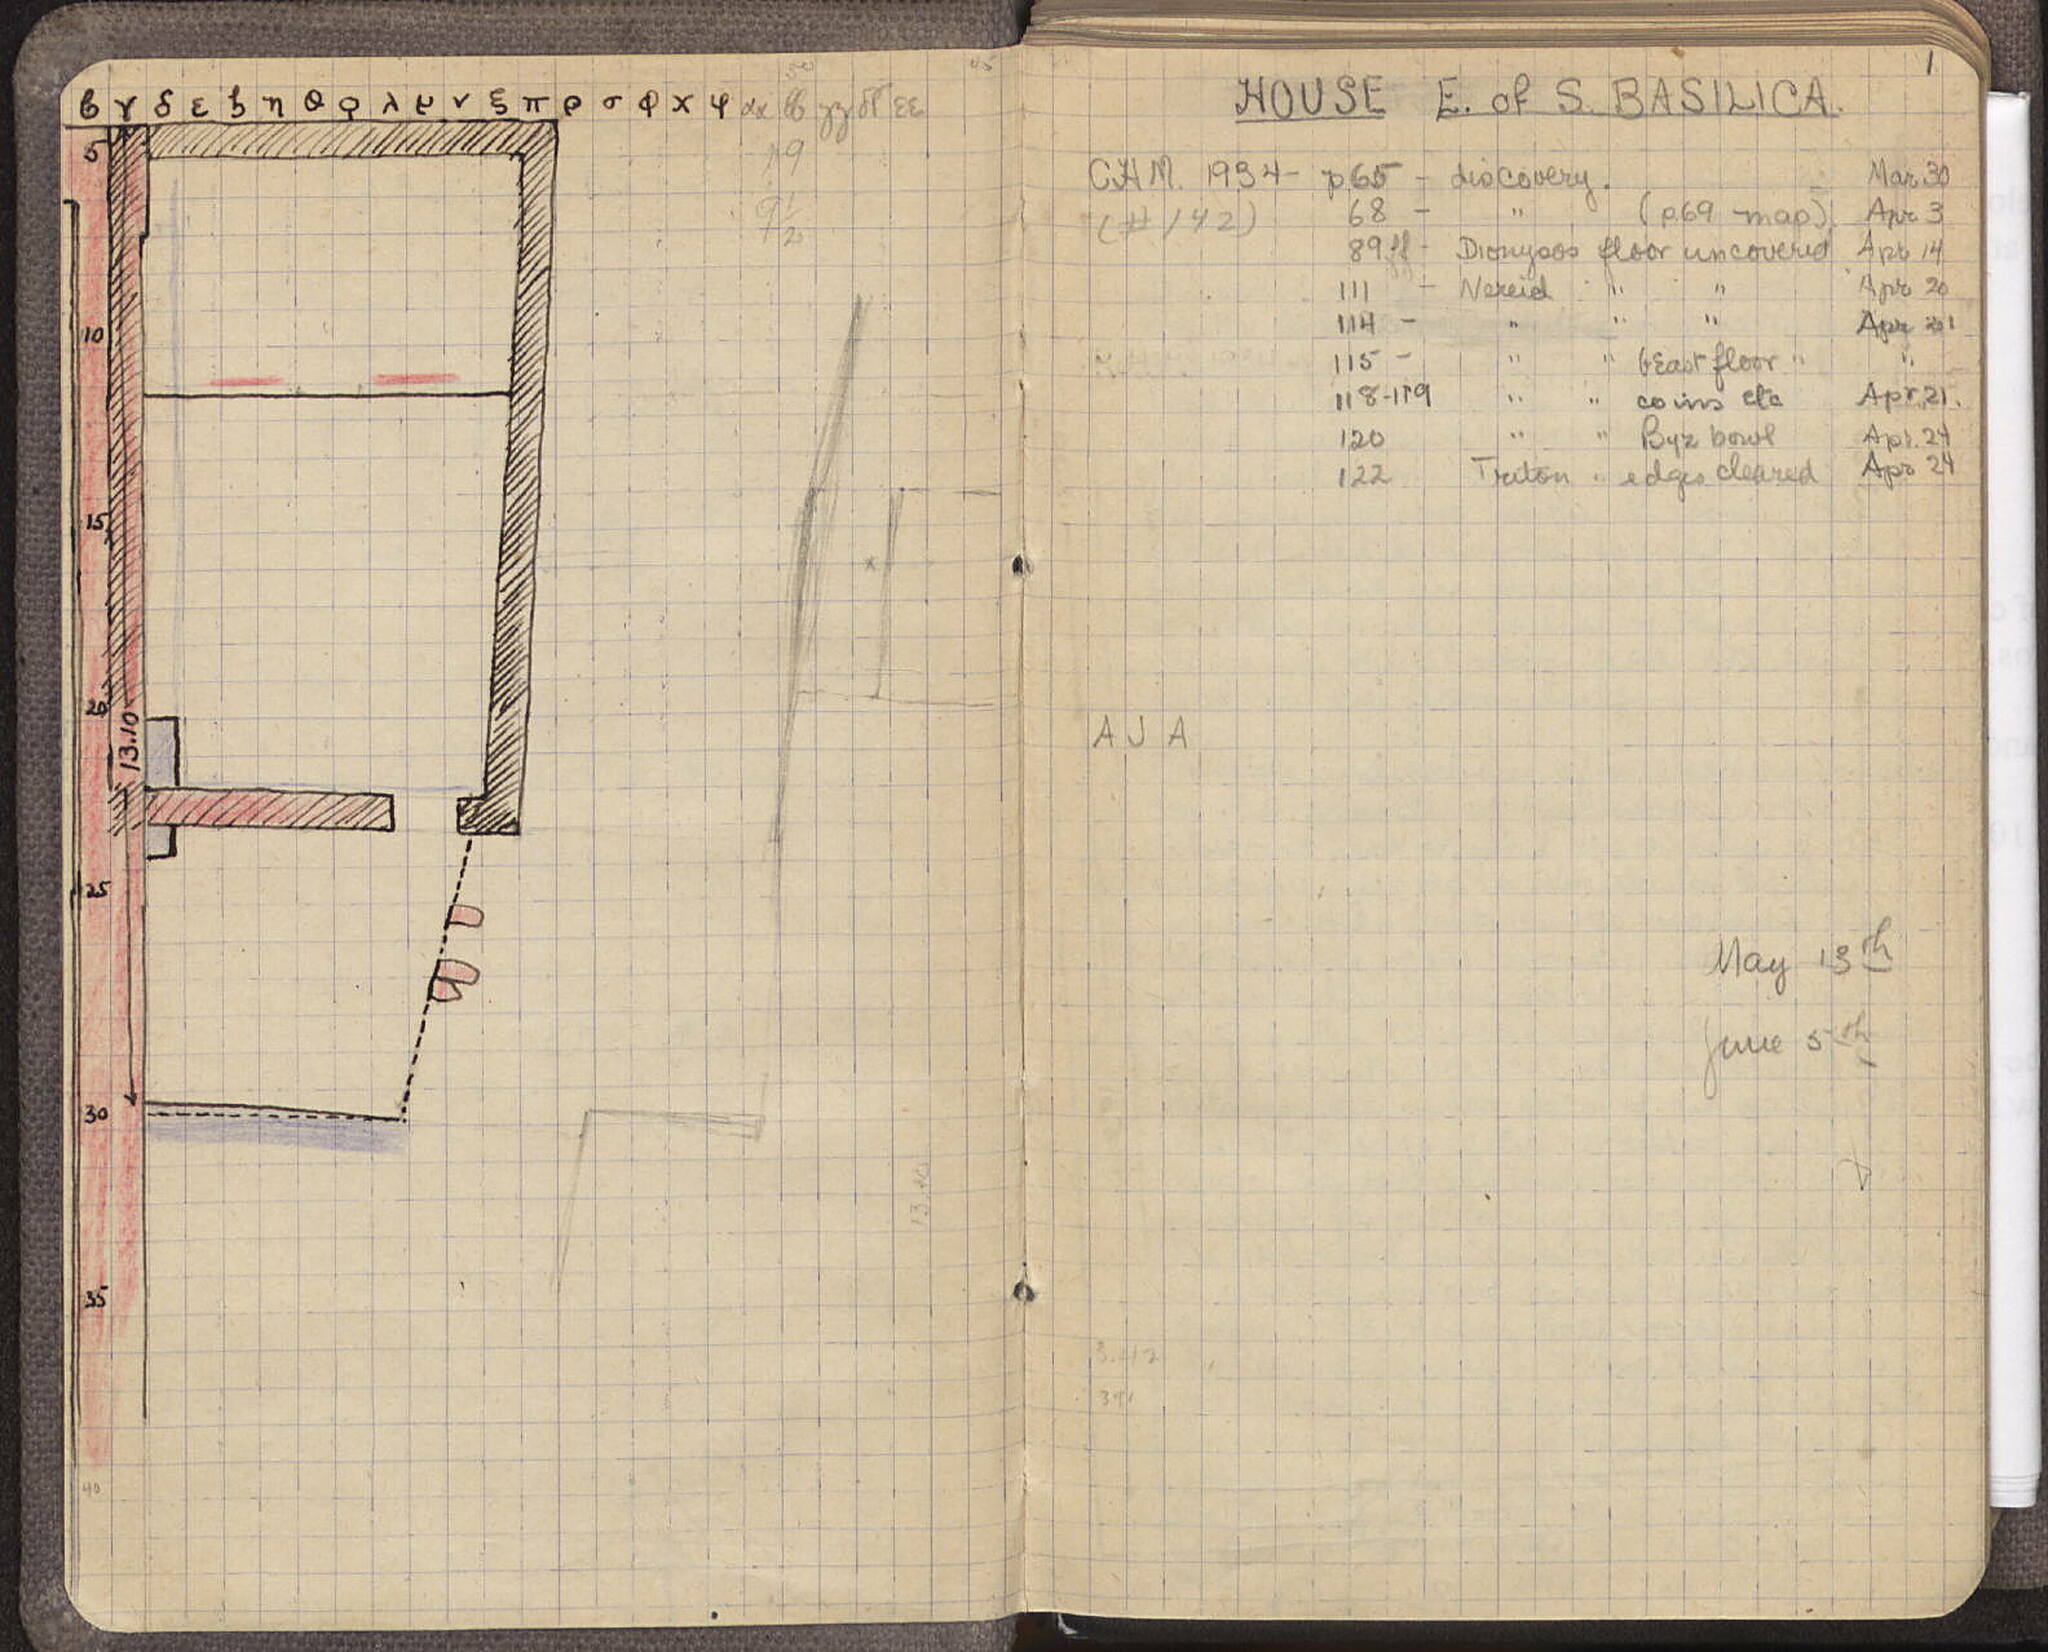 50 45
β γ δ ε ζ η θ φ λ μ ν ξ π ρ σ φ χ ψ αα ββ γγ δδ εε
5
19
9 1/2
10
15
20
13.10
25
30
13.10
35
40
1
HOUSE E. of S. BASILICA.
C.H.M. 1934 - p65 - discovery. Mar 30
(#142) 68 - " (p.69 map) Apr 3
89ff - Dionysos floor uncovered Apr 14
111 - Nereid " " Apr 20
114 - " " " Apr 21
115 - " " East floor " "
118-119 " " coins etc Apr. 21.
120 " " Byz bowl Apr. 24
122 Triton " edges cleared Apr 24
A J A
May 13th
June 5th
3.42